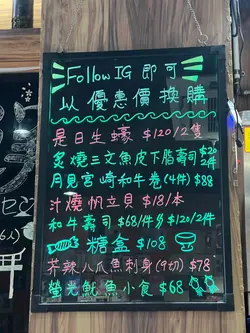 Follow IG 即可
以優惠價換購
是日生蠔 $120/2隻
炙燒三文魚皮下脂壽司 $20/2件
月見宮崎和牛卷(4件) $88
汁燒帆立貝 $18/本
和牛壽司 $68/件 $120/2件
糖盒 $108
芥辣八爪魚刺身(9切) $78
螢光魷魚小食 $68